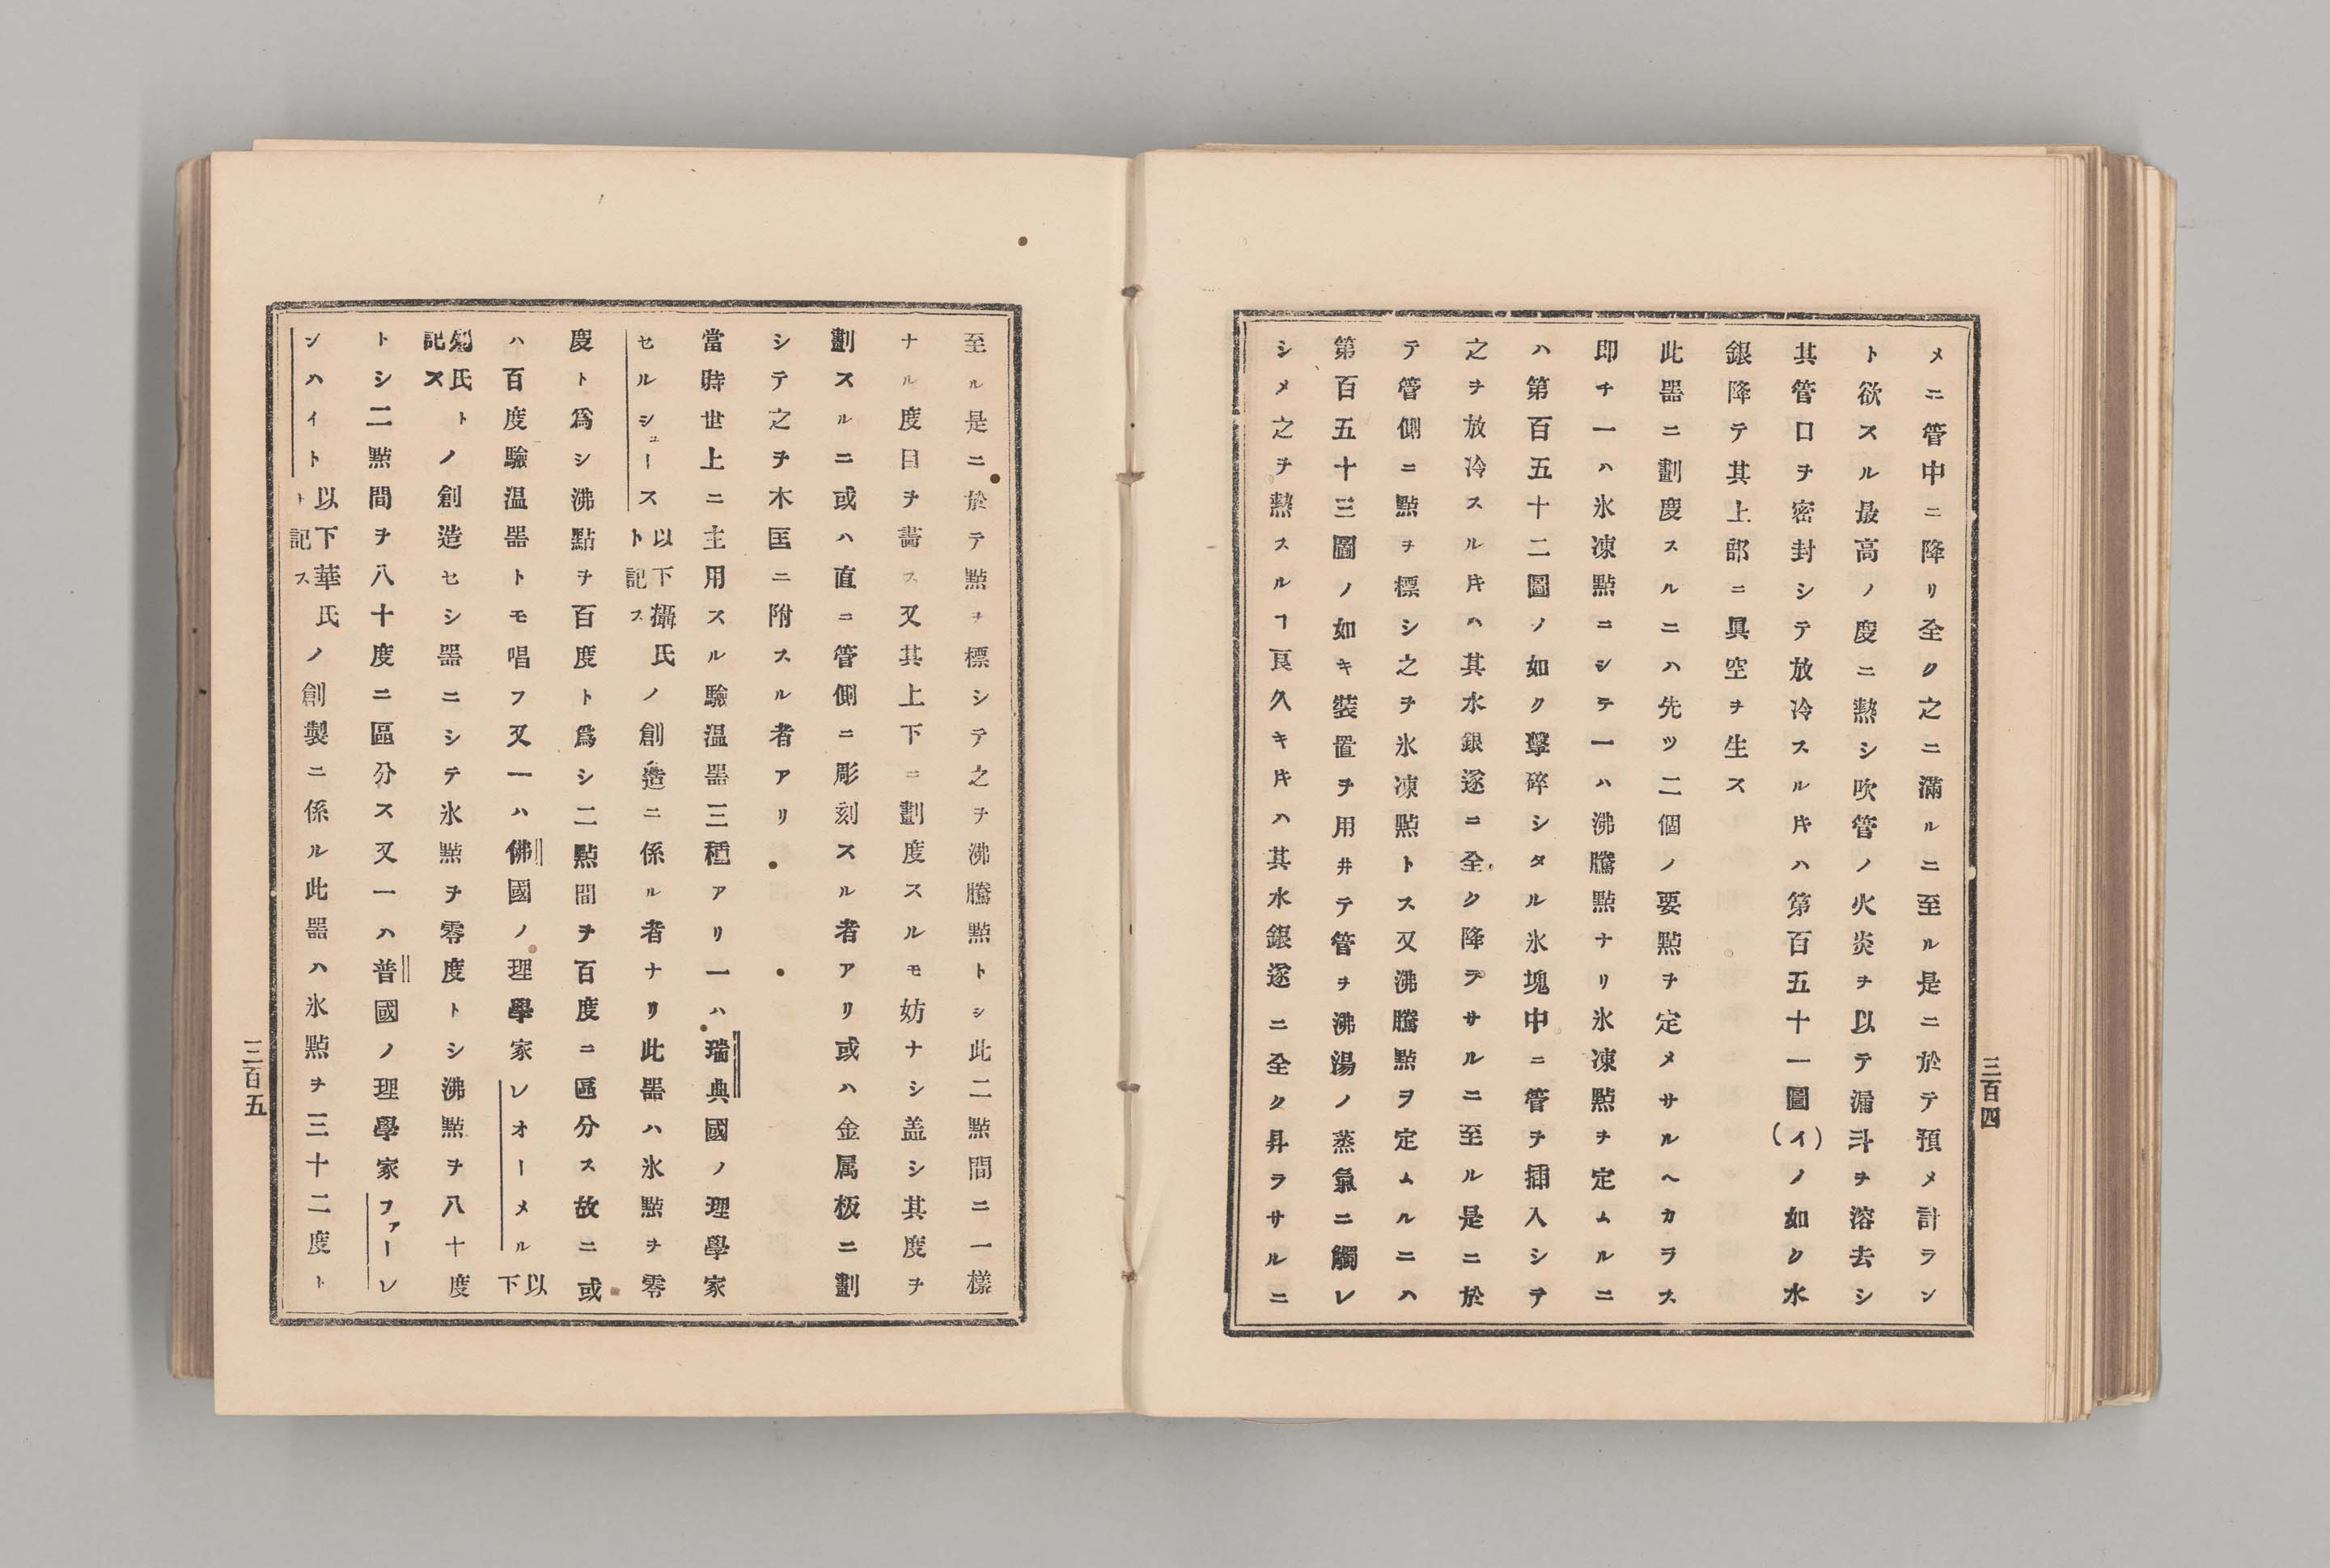 メニ管中ニ降リ全ク之ニ滿ルニ至ル是ニ於テ預メ計ラン
ト欲スル最高ノ度ニ熱シ吹管ノ火炎ヲ以テ漏斗ヲ溶去シ
其管口ヲ密封シテ放冷スル𪜈ハ第百五十一圖(イ)ノ如ク水
銀降テ其上部ニ眞空ヲ生ス
此器ニ劃度スルニハ先ツ二個ノ要㸃ヲ定メサルヘカラス
即チ一ハ氷凍㸃ニシテ一ハ沸騰㸃ナリ氷凍㸃ヲ定ムルニ
ハ第百五十二圖ノ如ク擊碎シタル氷塊中ニ管ヲ插入シテ
之ヲ放冷スル𪜈ハ其水銀遂ニ全ク降ラサルニ至ル是ニ於
テ管側ニ㸃ヲ標シ之ヲ氷凍㸃トス又沸騰㸃ヲ定ムルニハ
第百五十三圖ノ如キ裝置ヲ用井テ管ヲ沸湯ノ蒸氣ニ觸レ
シメ之ヲ熱スルヿ良久キ𪜈ハ其水銀遂ニ全ク昇ラサルニ
三百四
至ル是ニ於テ㸃ヲ標シテ之ヲ沸騰㸃トシ此二㸃間ニ一樣
ナル度目ヲ畵ス又其上下ニ劃度スルモ妨ナシ盖シ其度ヲ
劃スルニ或ハ直ニ管側ニ彫刻スル者アリ或ハ金属板ニ劃
シテ之ヲ木匡ニ附スル者アリ
當時世上ニ主用スル驗温器三種アリ一ハ瑞典國ノ理學家
セルシュース以下攝氏ト記スノ創造ニ係ル者ナリ此器ハ氷㸃ヲ零
度ト爲シ沸㸃ヲ百度ト爲シ二㸃間ヲ百度ニ區分ス故ニ或
ハ百度驗温器トモ唱フ又一ハ佛國ノ理學家レオーメル以下
列氏ト記スノ創造セシ器ニシテ氷㸃ヲ零度トシ沸㸃ヲ八十度
トシ二㸃間ヲ八十度ニ區分ス又一ハ普國ノ理學家ファーレ
ンハイト以下華氏ト記スノ創製ニ係ル此器ハ氷㸃ヲ三十二度ト
三百五